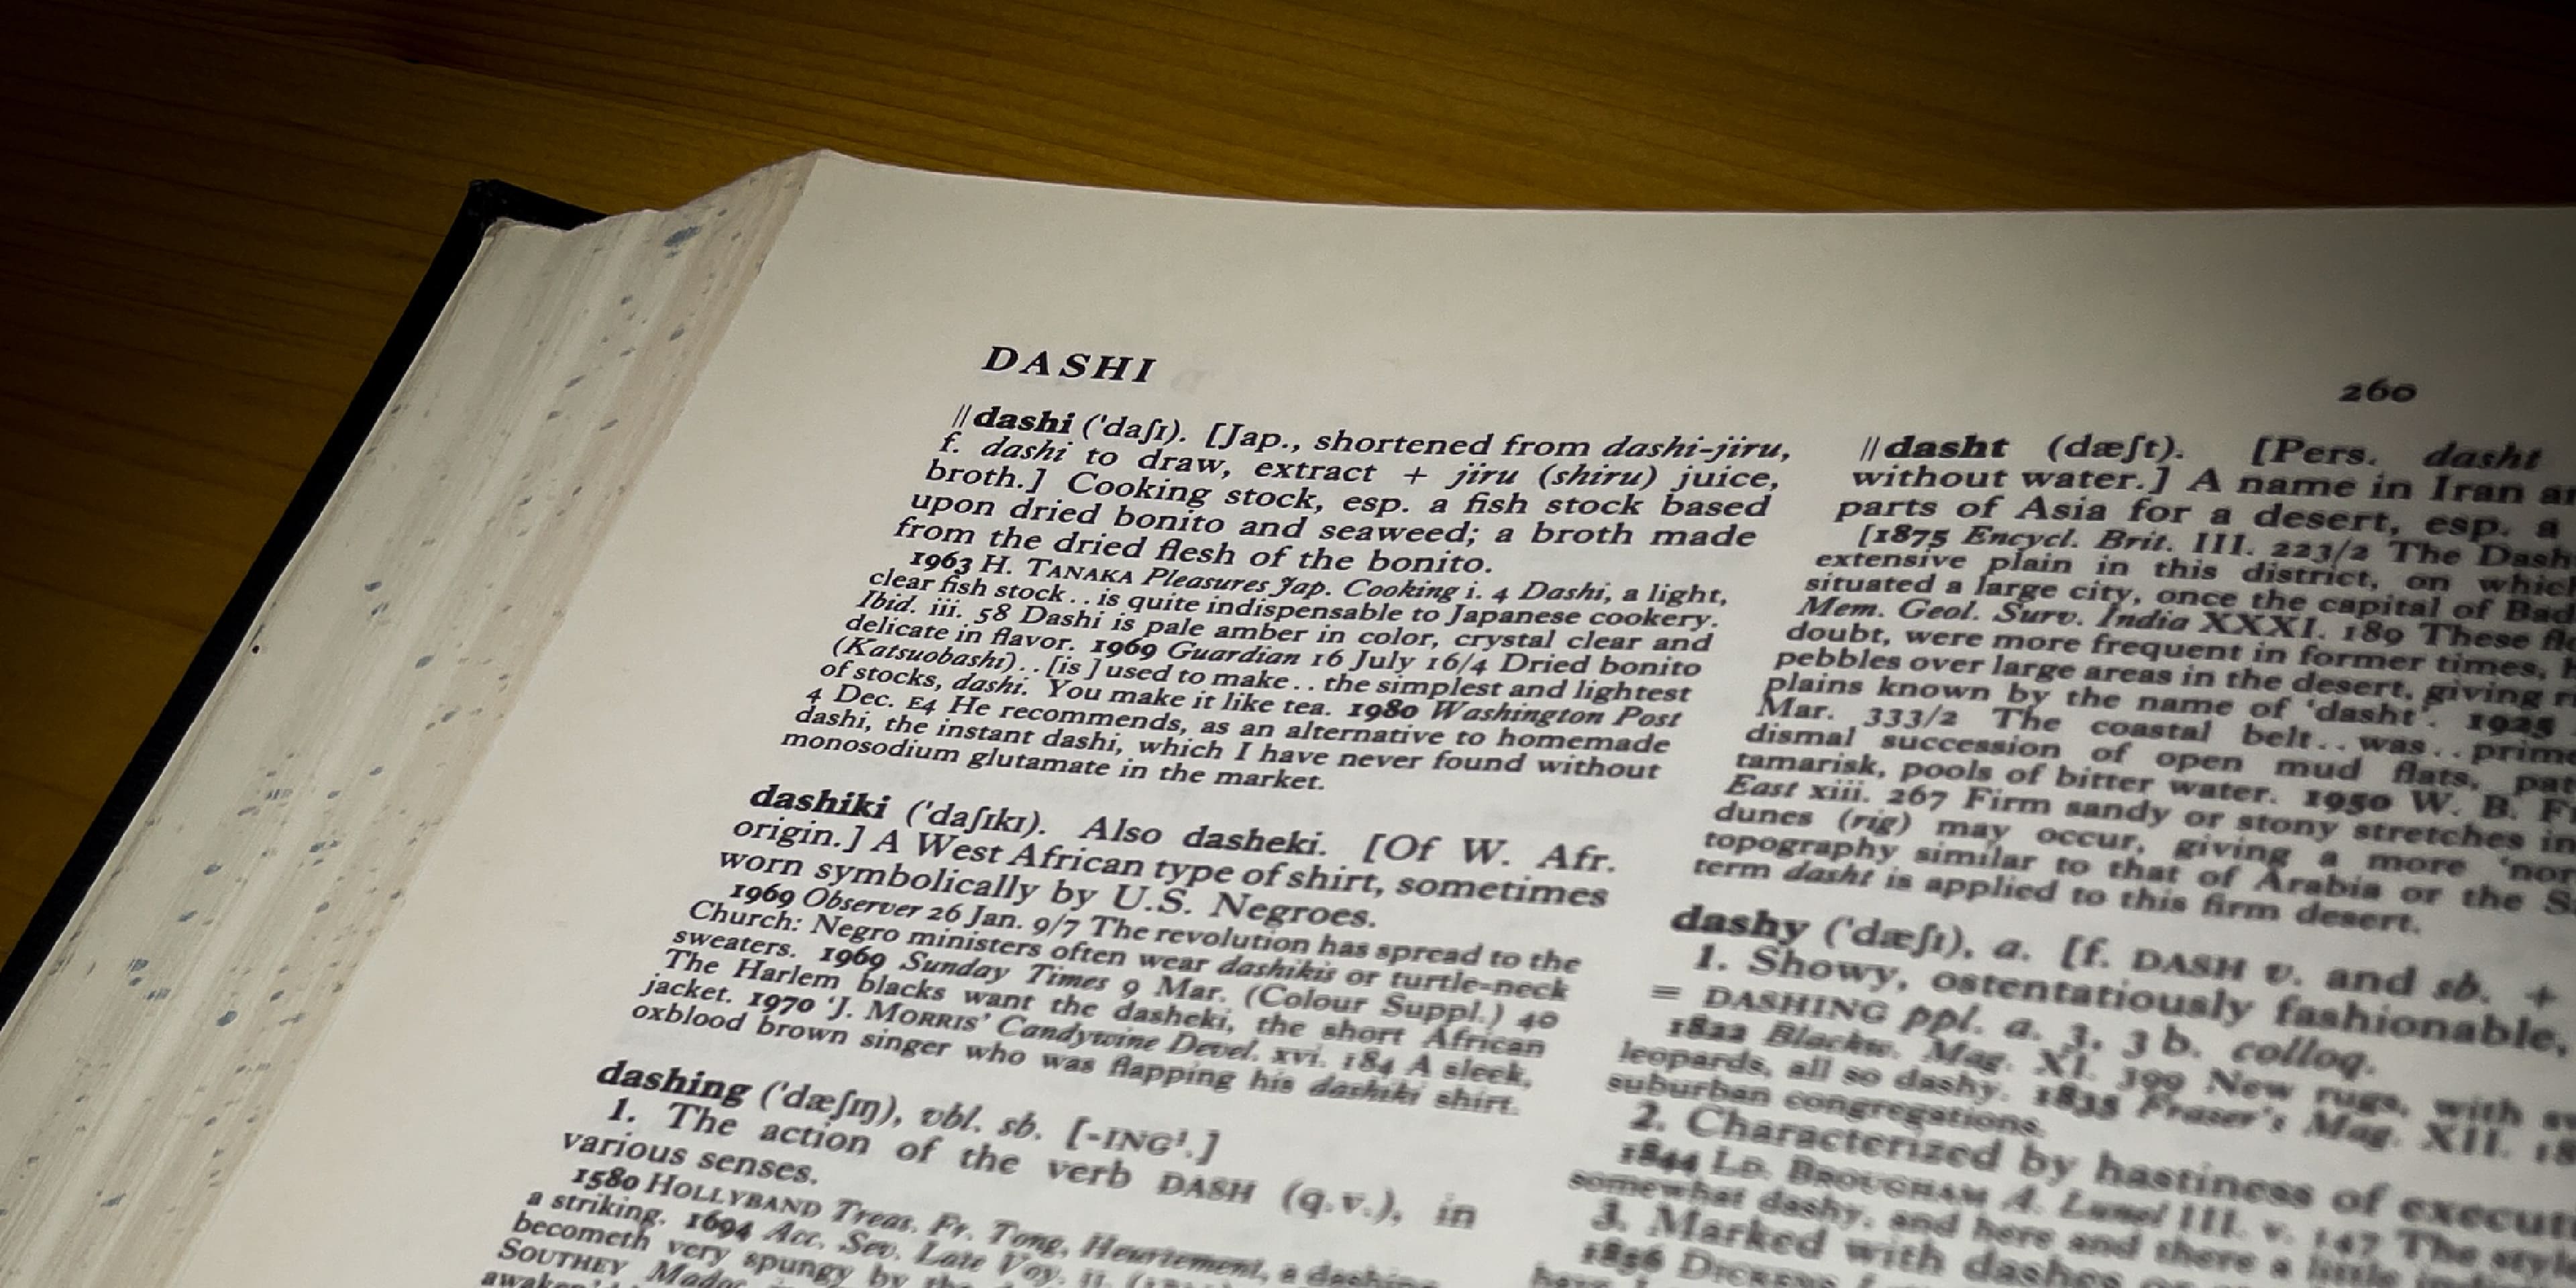 DASHI
260
‖dashi ('daʃɪ). [Jap., shortened from dashi-jiru,
f. dashi to draw, extract + jiru (shiru) juice,
broth.] Cooking stock, esp. a fish stock based
upon dried bonito and seaweed; a broth made
from the dried flesh of the bonito.
1963 H. TANAKA Pleasures Jap. Cooking i. 4 Dashi, a light,
clear fish stock . . is quite indispensable to Japanese cookery.
Ibid. iii. 58 Dashi is pale amber in color, crystal clear and
delicate in flavor. 1969 Guardian 16 July 16/4 Dried bonito
(Katsuobashi) . . [is] used to make . . the simplest and lightest
of stocks, dashi. You make it like tea. 1980 Washington Post
4 Dec. E4 He recommends, as an alternative to homemade
dashi, the instant dashi, which I have never found without
monosodium glutamate in the market.
dashiki ('daʃɪkɪ). Also dasheki. [Of W. Afr.
origin.] A West African type of shirt, sometimes
worn symbolically by U.S. Negroes.
1969 Observer 26 Jan. 9/7 The revolution has spread to the
Church: Negro ministers often wear dashikis or turtle-neck
sweaters. 1969 Sunday Times 9 Mar. (Colour Suppl.) 40
The Harlem blacks want the dasheki, the short African
jacket. 1970 'J. MORRIS' Candywine Devel. xvi. 184 A sleek,
oxblood brown singer who was flapping his dashiki shirt.
dashing ('dæʃɪŋ), vbl. sb. [-ING¹.]
1. The action of the verb DASH (q.v.), in
various senses.
1580 HOLLYBAND Treas. Fr. Tong, Heurtement, a dashing
a striking. 1694 Acc. Sev. Late Voy. II.
becometh very spungy by the
SOUTHEY Madoc
‖dasht (dæʃt). [Pers. dasht
without water.] A name in Iran
parts of Asia for a desert, esp. a
[1875 Encycl. Brit. III. 223/2 The
extensive plain in this district, on
situated a large city, once the capital of
Mem. Geol. Surv. India XXXI. 189 These
doubt, were more frequent in former times,
pebbles over large areas in the desert, giving
plains known by the name of 'dasht'. 1925
Mar. 333/2 The coastal belt . . was . .
dismal succession of open mud flats,
tamarisk, pools of bitter water. 1950 W. B.
East xiii. 267 Firm sandy or stony stretches in
dunes (rig) may occur, giving a more
topography similar to that of Arabia or the
term dasht is applied to this firm desert.
dashy ('dæʃɪ), a. [f. DASH v. and sb. +
1. Showy, ostentatiously fashionable,
= DASHING ppl. a. 3, 3 b. colloq.
1822 Blackw. Mag. XI. 399 New rugs, with
leopards, all so dashy. 1835 Fraser's Mag. XII.
suburban congregations.
2. Characterized by hastiness of
1844 LD. BROUGHAM A. Lunel III. v. 147 The
somewhat dashy, and here and there a little
3. Marked with dashes
1856 DICKENS